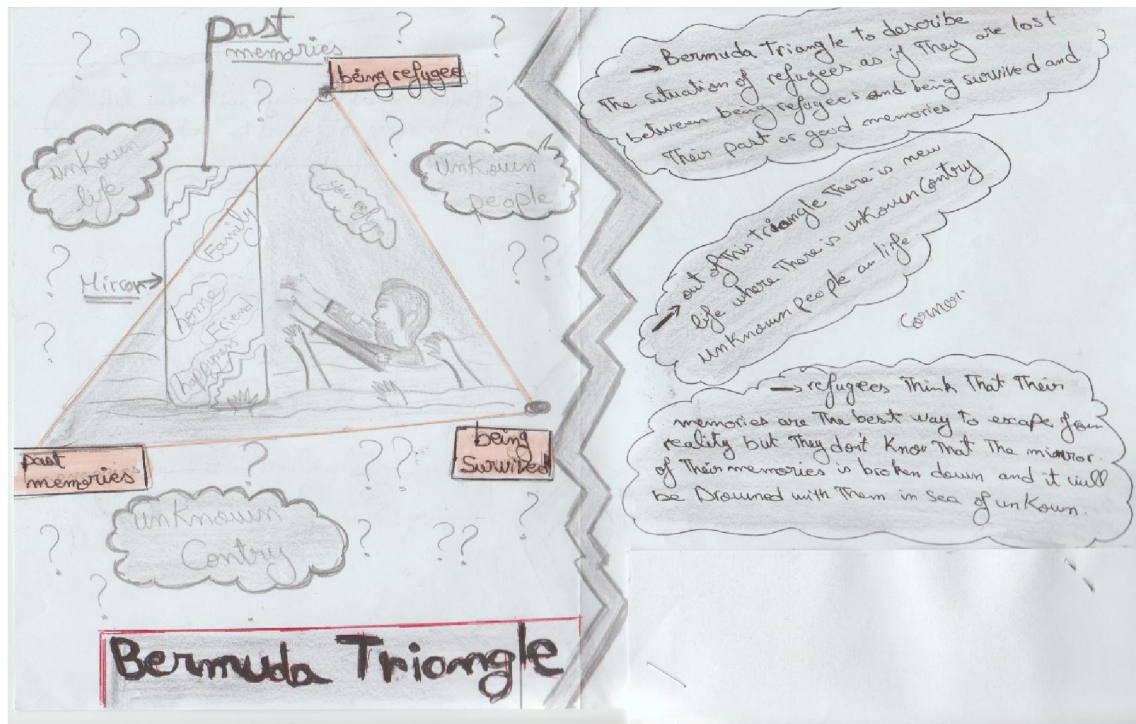 Past
memories
being refugee
unKown
life
unKown
people
Family
Miror
home
Friend
happiness
past
memories
being
Survived
unKnown
Contry
Bermuda Triangle
→ Bermuda Triangle to describe
The situation of refugees as if They are lost
between being refugees and being survived and
Their past or good memories.
→ out of This triangle There is new
life where There is unKown Contry
unKnown people an life
Corner
→ refugees Think That Their
memories are The best way to escape from
reality but They don't Know That The mirror
of Their memories is broken down and it will
be Drowned with Them in sea of unKown.